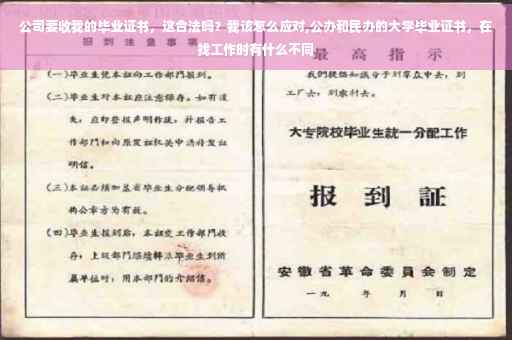 公司要收我的毕业证书，这合法吗？我该怎么应对,公办和民办的大学毕业证书，在
找工作时有什么不同
报到注意事项
(一)毕业生凭本证向工作部门报到。
(二)毕业生对本证应注意保存。如有遗
失，应即登报声明作废，并报告工
作部门和向原发证机关申请补发证
明信。
(三)本证必须加盖省毕业生分配领导机
构公章方为有效。
(四)毕业生报到后，本证交工作部门收
存；上级部门
属单位时，用本部门的介绍信。
最高指示
我们提倡知识分子到群众中去，到
工厂去，到农村去。
大专院校毕业生統一分配工作
报到証
安徽省革命委員会制定
一九 年 月 日